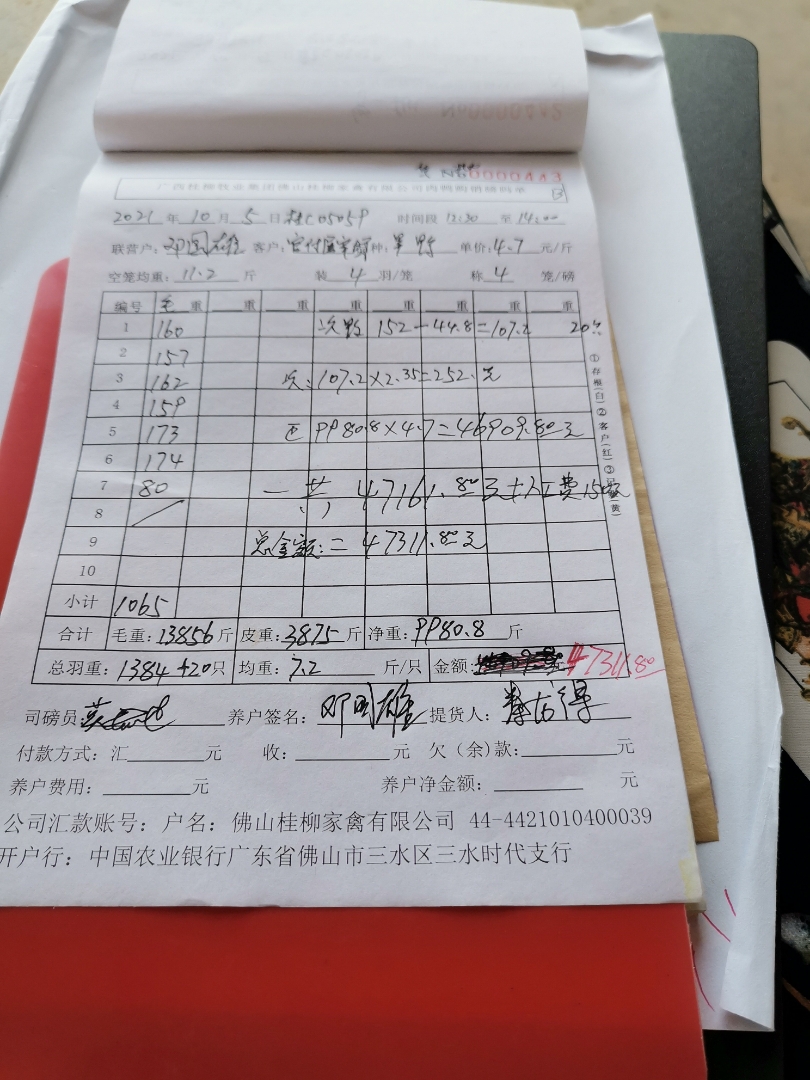 No 0000443
广西桂柳牧业集团佛山桂柳家禽有限公司肉鸭购销磅码单
2021 年 10 月 5 日 桂C05059 时间段 12:30 至 14:00
联营户: 邓国雄 客户: 种: 单价: 4.7 元/斤
空笼均重: 11.2 斤 装 4 羽/笼 称 4 笼/磅
编号 毛重 重 重 重 重 重 重 重
1 160 次鸭 152-44.8=107.2 20只
2 157
3 162 次: 107.2×2.35=252.元
4 159
5 173 正 9980.8×4.7=46909.80元
6 174
7 80 一共 47161.80元+人工费150元
8
9 总金额:=47311.80元
10
小计 1065
合计 毛重: 13856 斤 皮重: 3875 斤 净重: 9980.8 斤
总羽重: 1384+20 只 均重: 7.2 斤/只 金额: 47311.80
①存根(白)②客户(红)③(黄)
司磅员 养户签名: 邓国雄 提货人:
付款方式: 汇 元 收: 元 欠(余)款: 元
养户费用: 元 养户净金额: 元
公司汇款账号: 户名: 佛山桂柳家禽有限公司 44-4421010400039
开户行: 中国农业银行广东省佛山市三水区三水时代支行